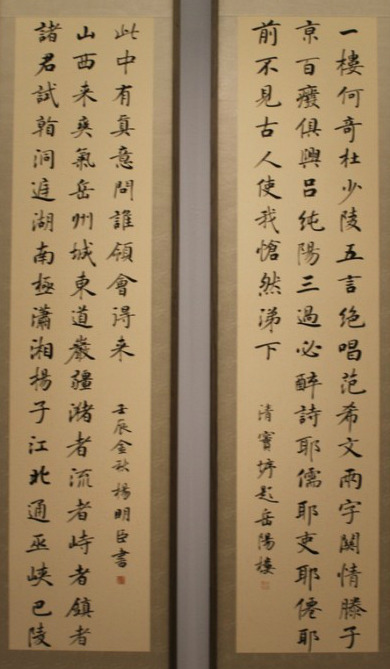 一樓何奇杜少陵五言絕唱范希文兩字関情滕子
京百癈俱興呂純陽三過必醉詩耶儒耶吏耶僊耶
前不見古人使我愴然涕下
清竇垿題岳陽樓
諸君試看洞庭湖南極瀟湘揚子江北通巫峽巴陵
山西来爽氣岳州城東道巖疆潴者流者峙者鎮者
此中有真意問誰領會得来
壬辰金秋楊明臣書